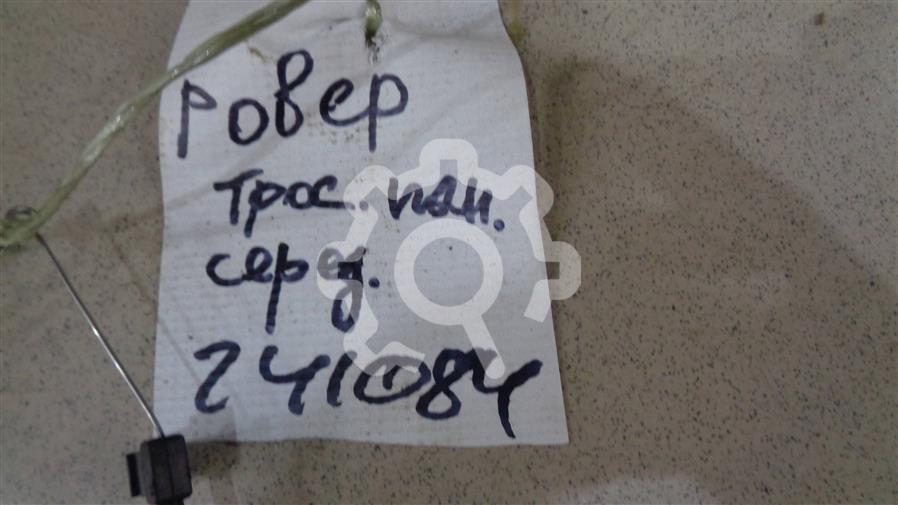 Ровер
трос. пан.
серед.
241084